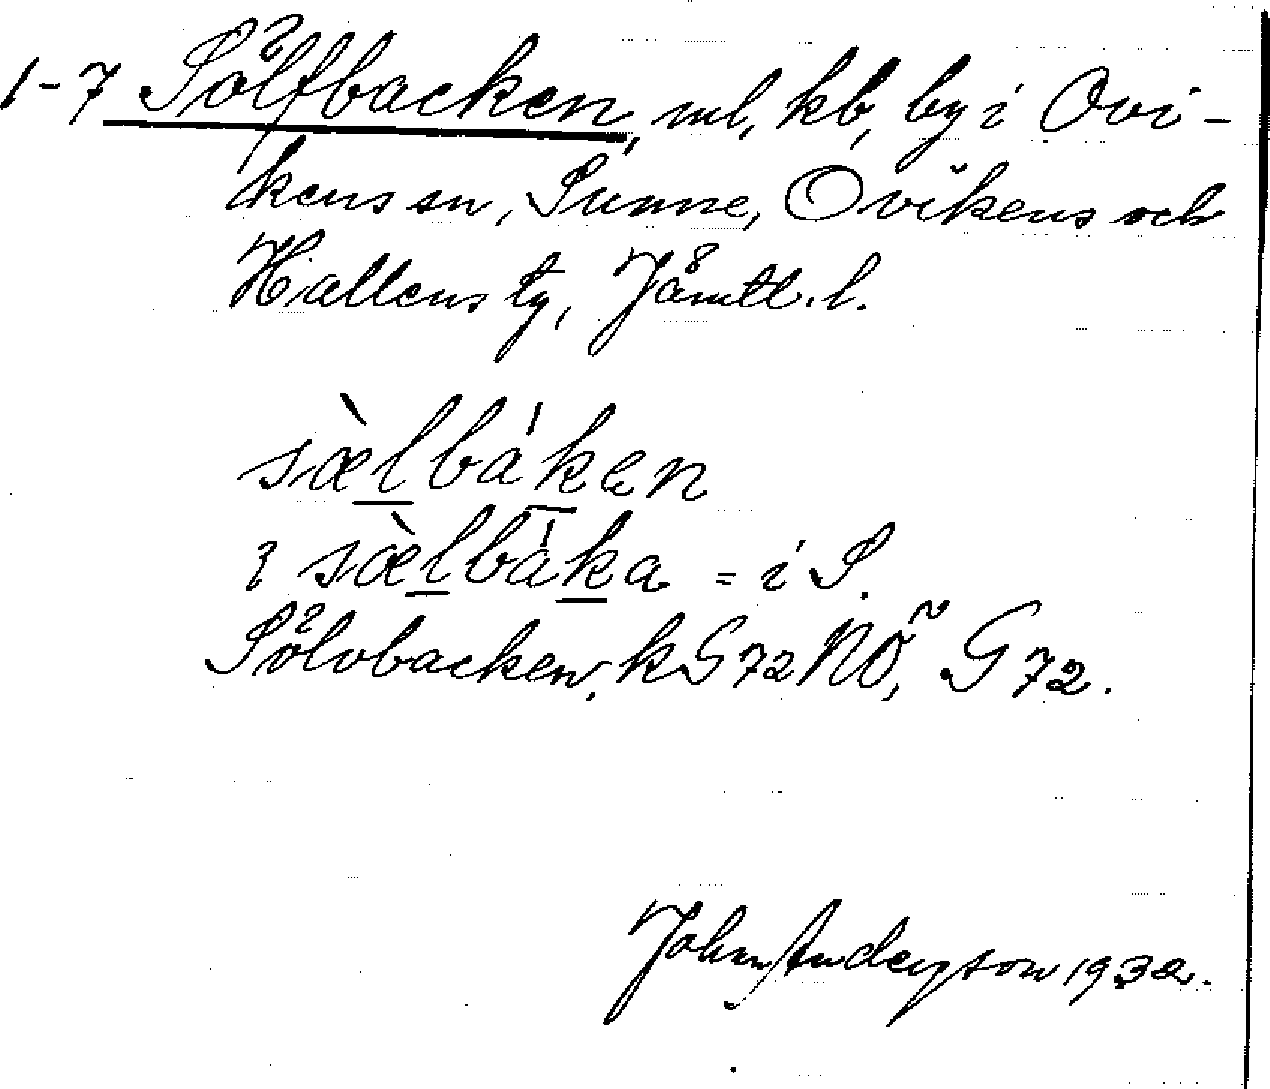 1-7 Sölfbacken, ml, kb, by i Ovi-
kens sn, Sunne, Ovikens och
Hallens tg, Jämtl. l.
sæ̀lbáken
i sæ̀lbáka = i S.
Sölvbacken, kG72NÖ, G72.
John Anderson 1932.